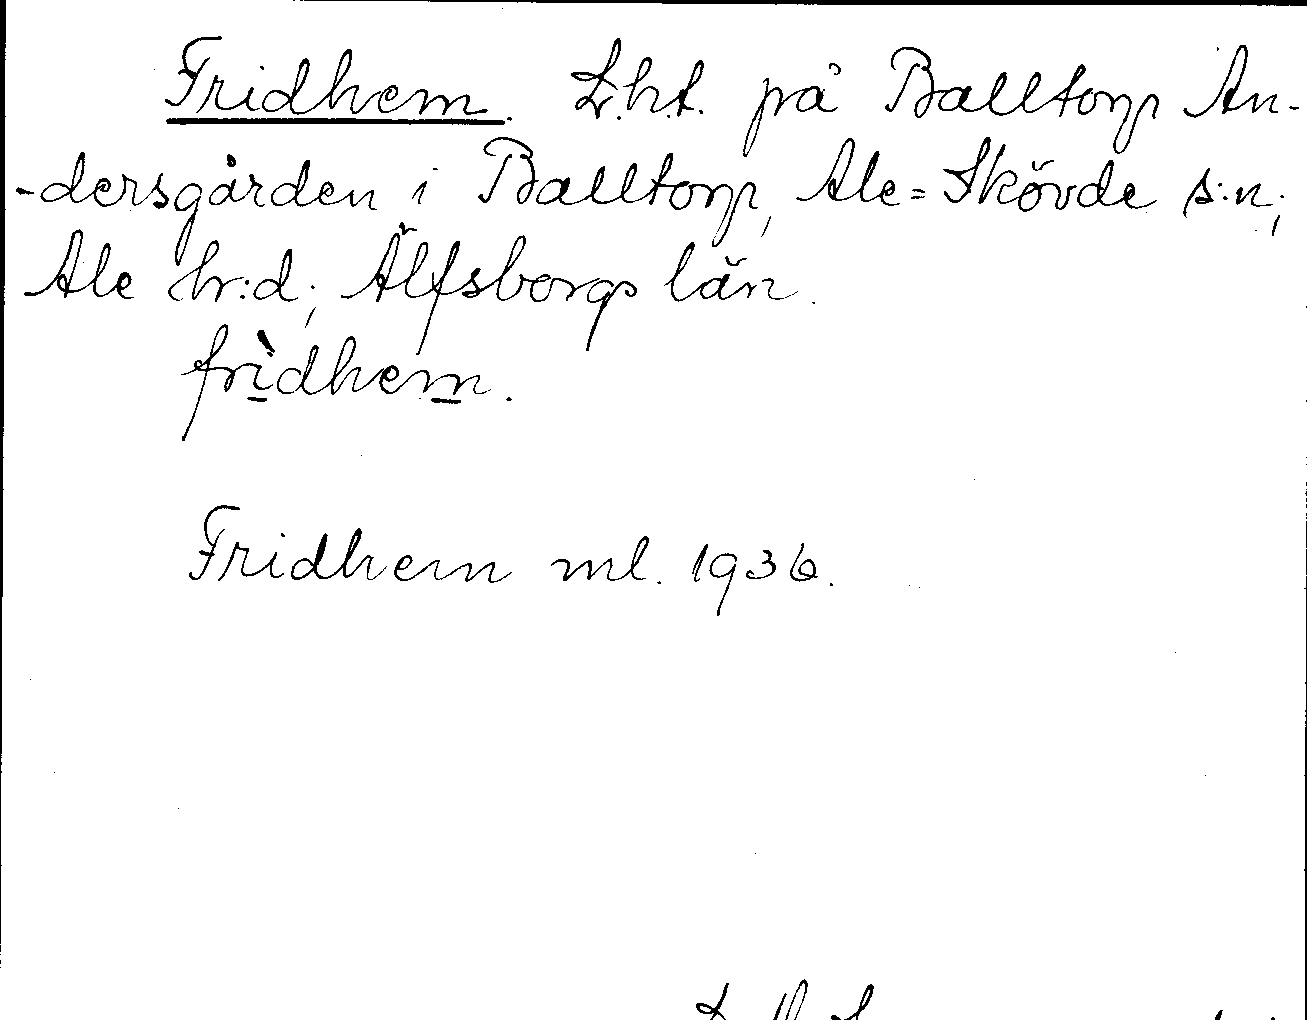 Fridhem. L.h.t. på Balltorp An-
-dersgården i Balltorp, Ale=Skövde s:n;
Ale hr:d; Älfsborgs län.
frìdhem.
Fridhem ml. 1936.